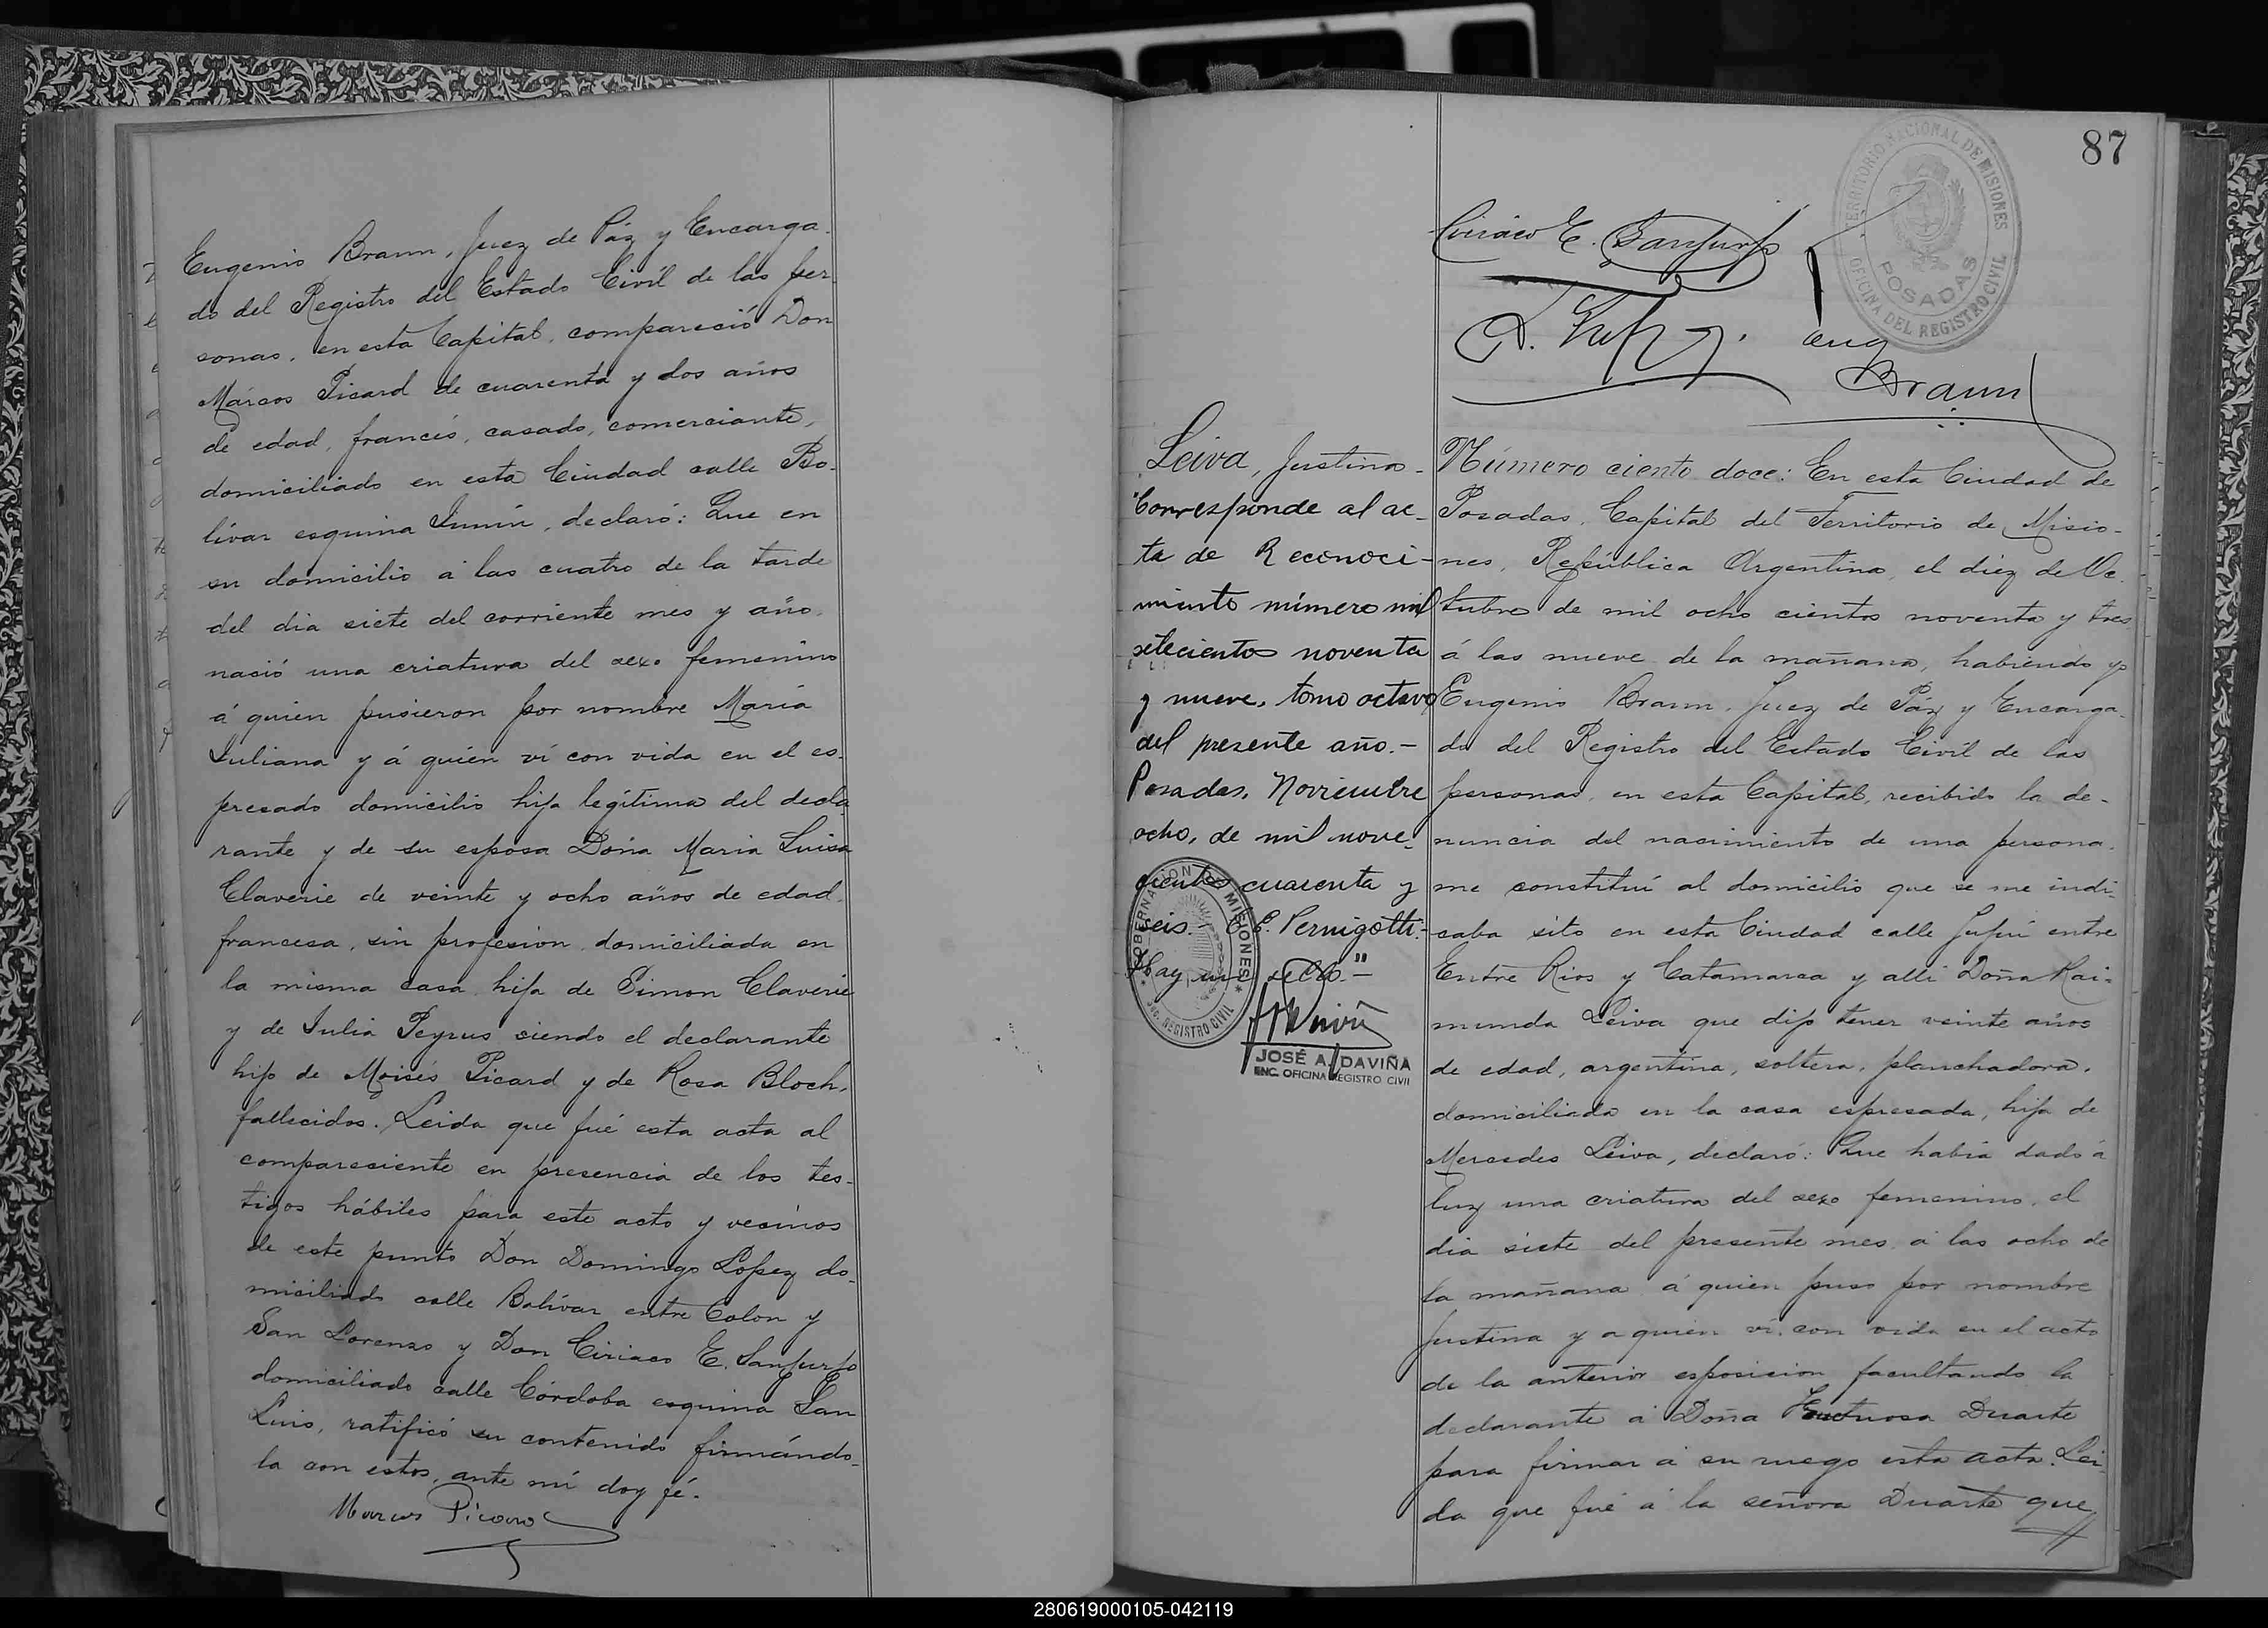 Eugenio Braun, Juez de Páz y Encarga-
do del Registro del Estado Civil de las per-
sonas, en esta Capital, compareció Don
Márcos Picard de cuarenta y dos años
de edad, francés, casado, comerciante,
domiciliado en esta Ciudad calle Bo-
lívar esquina Junín, declaró: Que en
su domicilio á las cuatro de la tarde
del dia siete del corriente mes y año,
nació una criatura del sexo femenino
á quien pusieron por nombre María
Juliana y á quién ví con vida en el es-
presado domicilio hija legítima del decla-
rante y de su esposa Doña Maria Luisa
Claverie de veinte y ocho años de edad,
francesa, sin profesion, domiciliada en
la misma casa, hija de Simon Claverie
y de Julia Peyrus siendo el declarante
hijo de Moisés Picard y de Rosa Bloch,
fallecidos. Leida que fué esta acta al
compareciente en presencia de los tes-
tigos hábiles para este acto y vecinos
de este punto Don Domingo Lopez do-
miciliado calle Bolívar entre Colon y
San Lorenzo y Don Ciriaco E. Sanjurjo
domiciliado calle Córdoba esquina San
Luis, ratificó su contenido firmándo-
la con estos, ante mí doy fé.
Marcos Picard
87
TERRITORIO NACIONAL DE MISIONES
POSADAS
OFICINA DEL REGISTRO CIVIL
Ciriaco E. Sanjurjo
Eug Braun
Leiva, Justina-
"Corresponde al ac-
ta de Reconoci-
miento número mil
setecientos noventa
y nueve, tomo octavo
del presente año.-
Posadas, Noviembre
ocho, de mil nove-
cientos cuarenta y
seis.- E. Pernigotti.-
Hay un sello."-
GOBERNACION MISIONES
REGISTRO CIVIL
JOSÉ A. DAVIÑA
ENC. OFICINA REGISTRO CIVIL
Número ciento doce: En esta Ciudad de
Posadas, Capital del Territorio de Misio-
nes, República Argentina, el diez de Oc-
tubre de mil ocho cientos noventa y tres
á las nueve de la mañana, habiendo yo
Eugenio Braun, Juez de Páz y Encarga-
do del Registro del Estado Civil de las
personas, en esta Capital, recibido la de-
nuncia del nacimiento de una persona,
me constituí al domicilio que se me indi-
caba sito en esta Ciudad calle Jujuí entre
Entre Rios y Catamarca y allí Doña Rai-
munda Leiva que dijo tener veinte años
de edad, argentina, soltera, planchadora,
domiciliada en la casa espresada, hija de
Mercedes Leiva, declaró: Que habia dado á
luz una criatura del sexo femenino, el
dia siete del presente mes á las ocho de
la mañana á quien puso por nombre
Justina y a quien ví con vida en el acto
de la anterior esposicion facultando la
declarante á Doña Fructuosa Duarte
para firmar á su ruego esta acta. Lei-
da que fué á la señora Duarte que
280619000105-042119